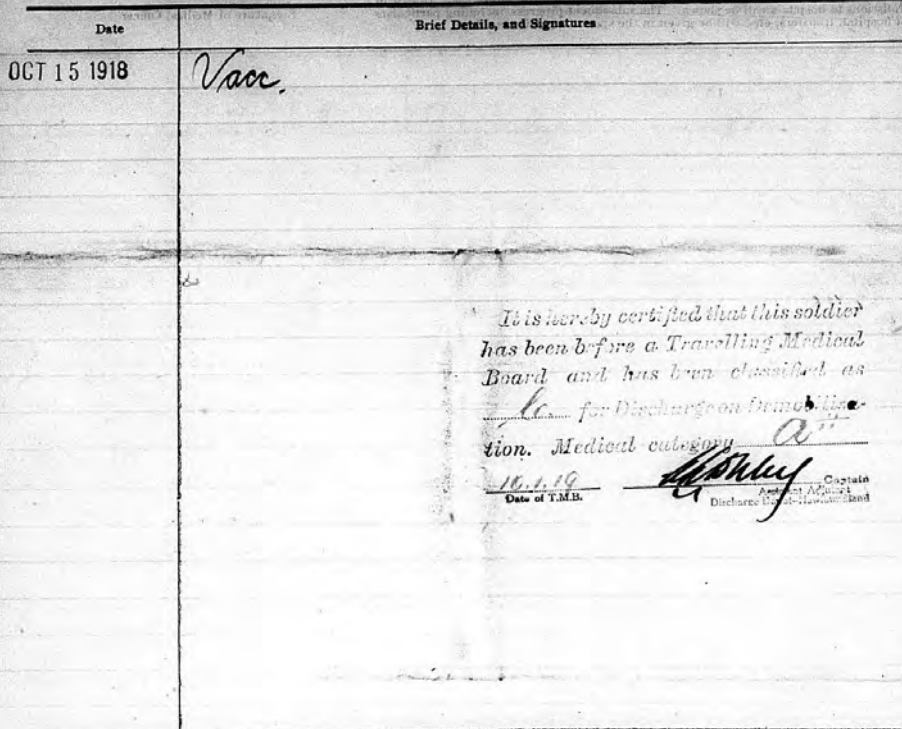 Date
Brief Details, and Signatures
OCT 15 1918
Vacc.
It is hereby certified that this soldier
has been before a Travelling Medical
Board and has been classified as
for Discharge on Demobiliza-
tion. Medical category A ii
1.19
Date of T.M.B.
Captain
Assistant Adjutant
Discharge Depot-Newfoundland